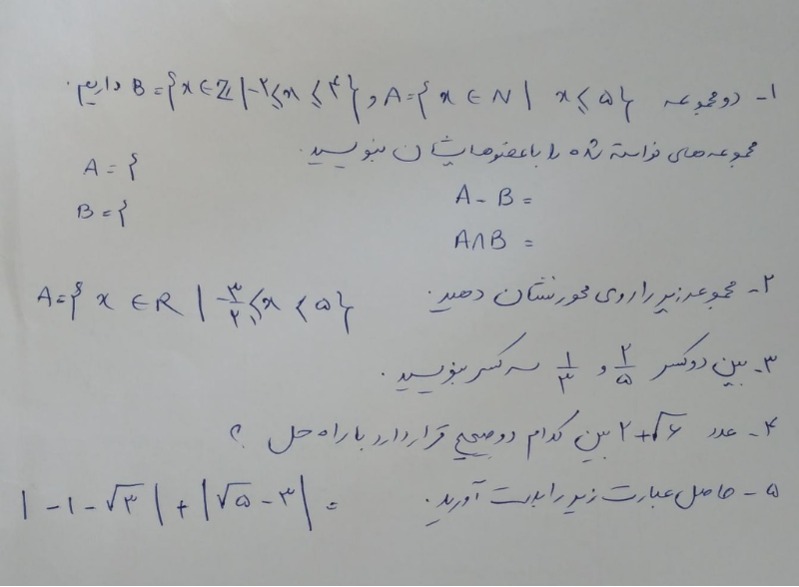 ۱- دو مجموعه A={x∈N | x⩽۵} و B={x∈Z | -۲⩽x⩽۴} داریم.
مجموعه‌های خواسته شده را با عضوهایشان بنویسید.
A={
A-B=
B={
A∩B=
۲- مجموعه زیر را روی محور نشان دهید. A={x∈R | -۳/۲⩽x<۵}
۳- بین دو کسر ۲/۵ و ۱/۳ سه کسر بنویسید.
۴- عدد ۲+√۶ بین کدام دو صحیح قرار دارد با راه حل ؟
۵- حاصل عبارت زیر را بدست آورید. |-۱-√۳|+|√۵-۳|=